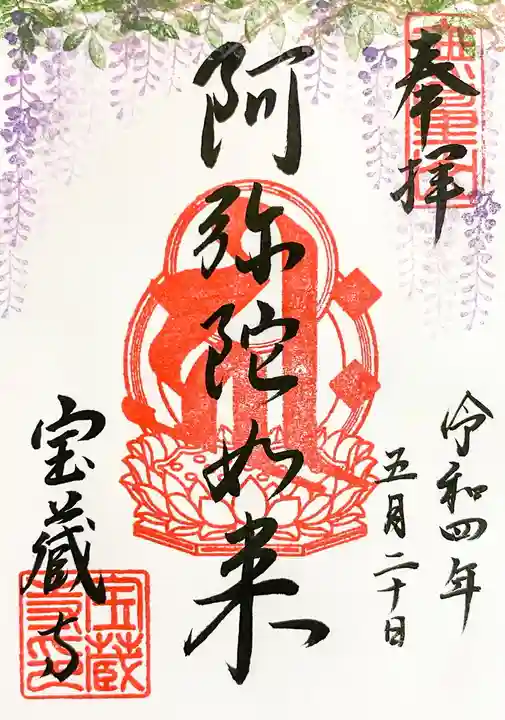 奉拝
阿弥陀如来
令和四年
五月二十日
宝蔵寺